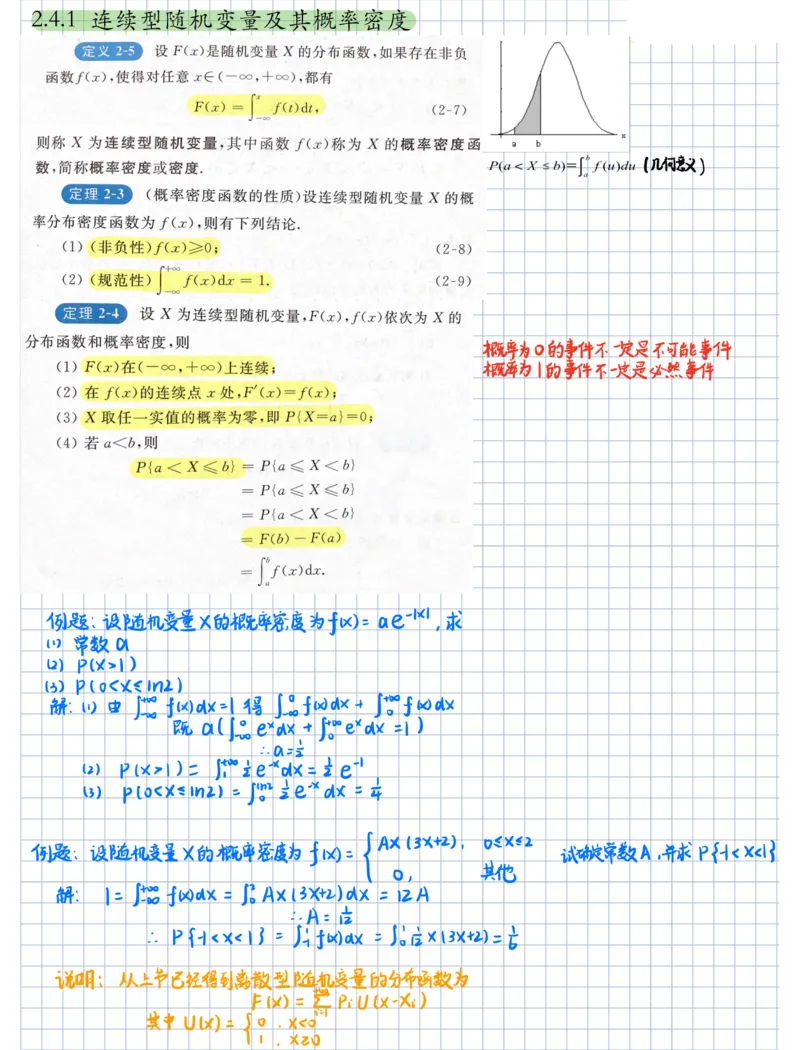 2.4.1 连续型随机变量及其概率密度
定义 2-5 设 F(x)是随机变量 X 的分布函数,如果存在非负
函数f(x),使得对任意 x∈(-∞,+∞),都有
F(x) = ∫_{-∞}^{x} f(t)dt, (2-7)
则称 X 为连续型随机变量,其中函数 f(x)称为 X 的概率密度函
数,简称概率密度或密度.
a b x
P(a < X ≤ b)=∫_a^b f(u)du (几何意义)
定理 2-3 (概率密度函数的性质)设连续型随机变量 X 的概
率分布密度函数为 f(x),则有下列结论.
(1) (非负性)f(x)≥0; (2-8)
(2) (规范性)∫_{-∞}^{+∞} f(x)dx = 1. (2-9)
定理 2-4 设 X 为连续型随机变量,F(x),f(x)依次为 X 的
分布函数和概率密度,则
(1) F(x)在(-∞,+∞)上连续;
(2) 在 f(x)的连续点 x 处,F′(x)=f(x);
(3) X 取任一实值的概率为零,即 P{X=a}=0;
(4) 若 a<b,则
P{a < X ≤ b} = P{a ≤ X < b}
= P{a ≤ X ≤ b}
= P{a < X < b}
= F(b) - F(a)
= ∫_a^b f(x)dx.
概率为0的事件不一定是不可能事件
概率为1的事件不一定是必然事件
例题:设随机变量X的概率密度为f(x)= ae^{-|x|},求
(1) 常数a
(2) P(X>1)
(3) P(0<X≤ln2)
解:(1) 由 ∫_{-∞}^{+∞} f(x)dx=1 得 ∫_{-∞}^{0} f(x)dx + ∫_{0}^{+∞} f(x)dx
既 a(∫_{-∞}^{0} e^x dx + ∫_{0}^{+∞} e^x dx =1)
∴a=1/2
(2) P(X>1) = ∫_1^{+∞} 1/2 e^{-x}dx = 1/2 e^{-1}
(3) P(0<X≤ln2) = ∫_0^{ln2} 1/2 e^{-x} dx = 1/4
例题:设随机变量X的概率密度为 f(x)= { AX(3X+2), 0≤X≤2 试确定常数A,并求 P{-1<X<1}
0, 其他
解: 1= ∫_{-∞}^{+∞} f(x)dx = ∫_0^2 AX(3X+2)dX = 12A
∴A = 1/12
∴ P{-1<X<1} = ∫_{-1}^1 f(x)dx = ∫_0^1 1/12 X(3X+2) = 1/6
说明:从上节已经得到离散型随机变量的分布函数为
F(X) = ∑_{i=1}^{∞} P_i U(X-X_i)
其中 U(X) = { 0, X<0
1, X≥0